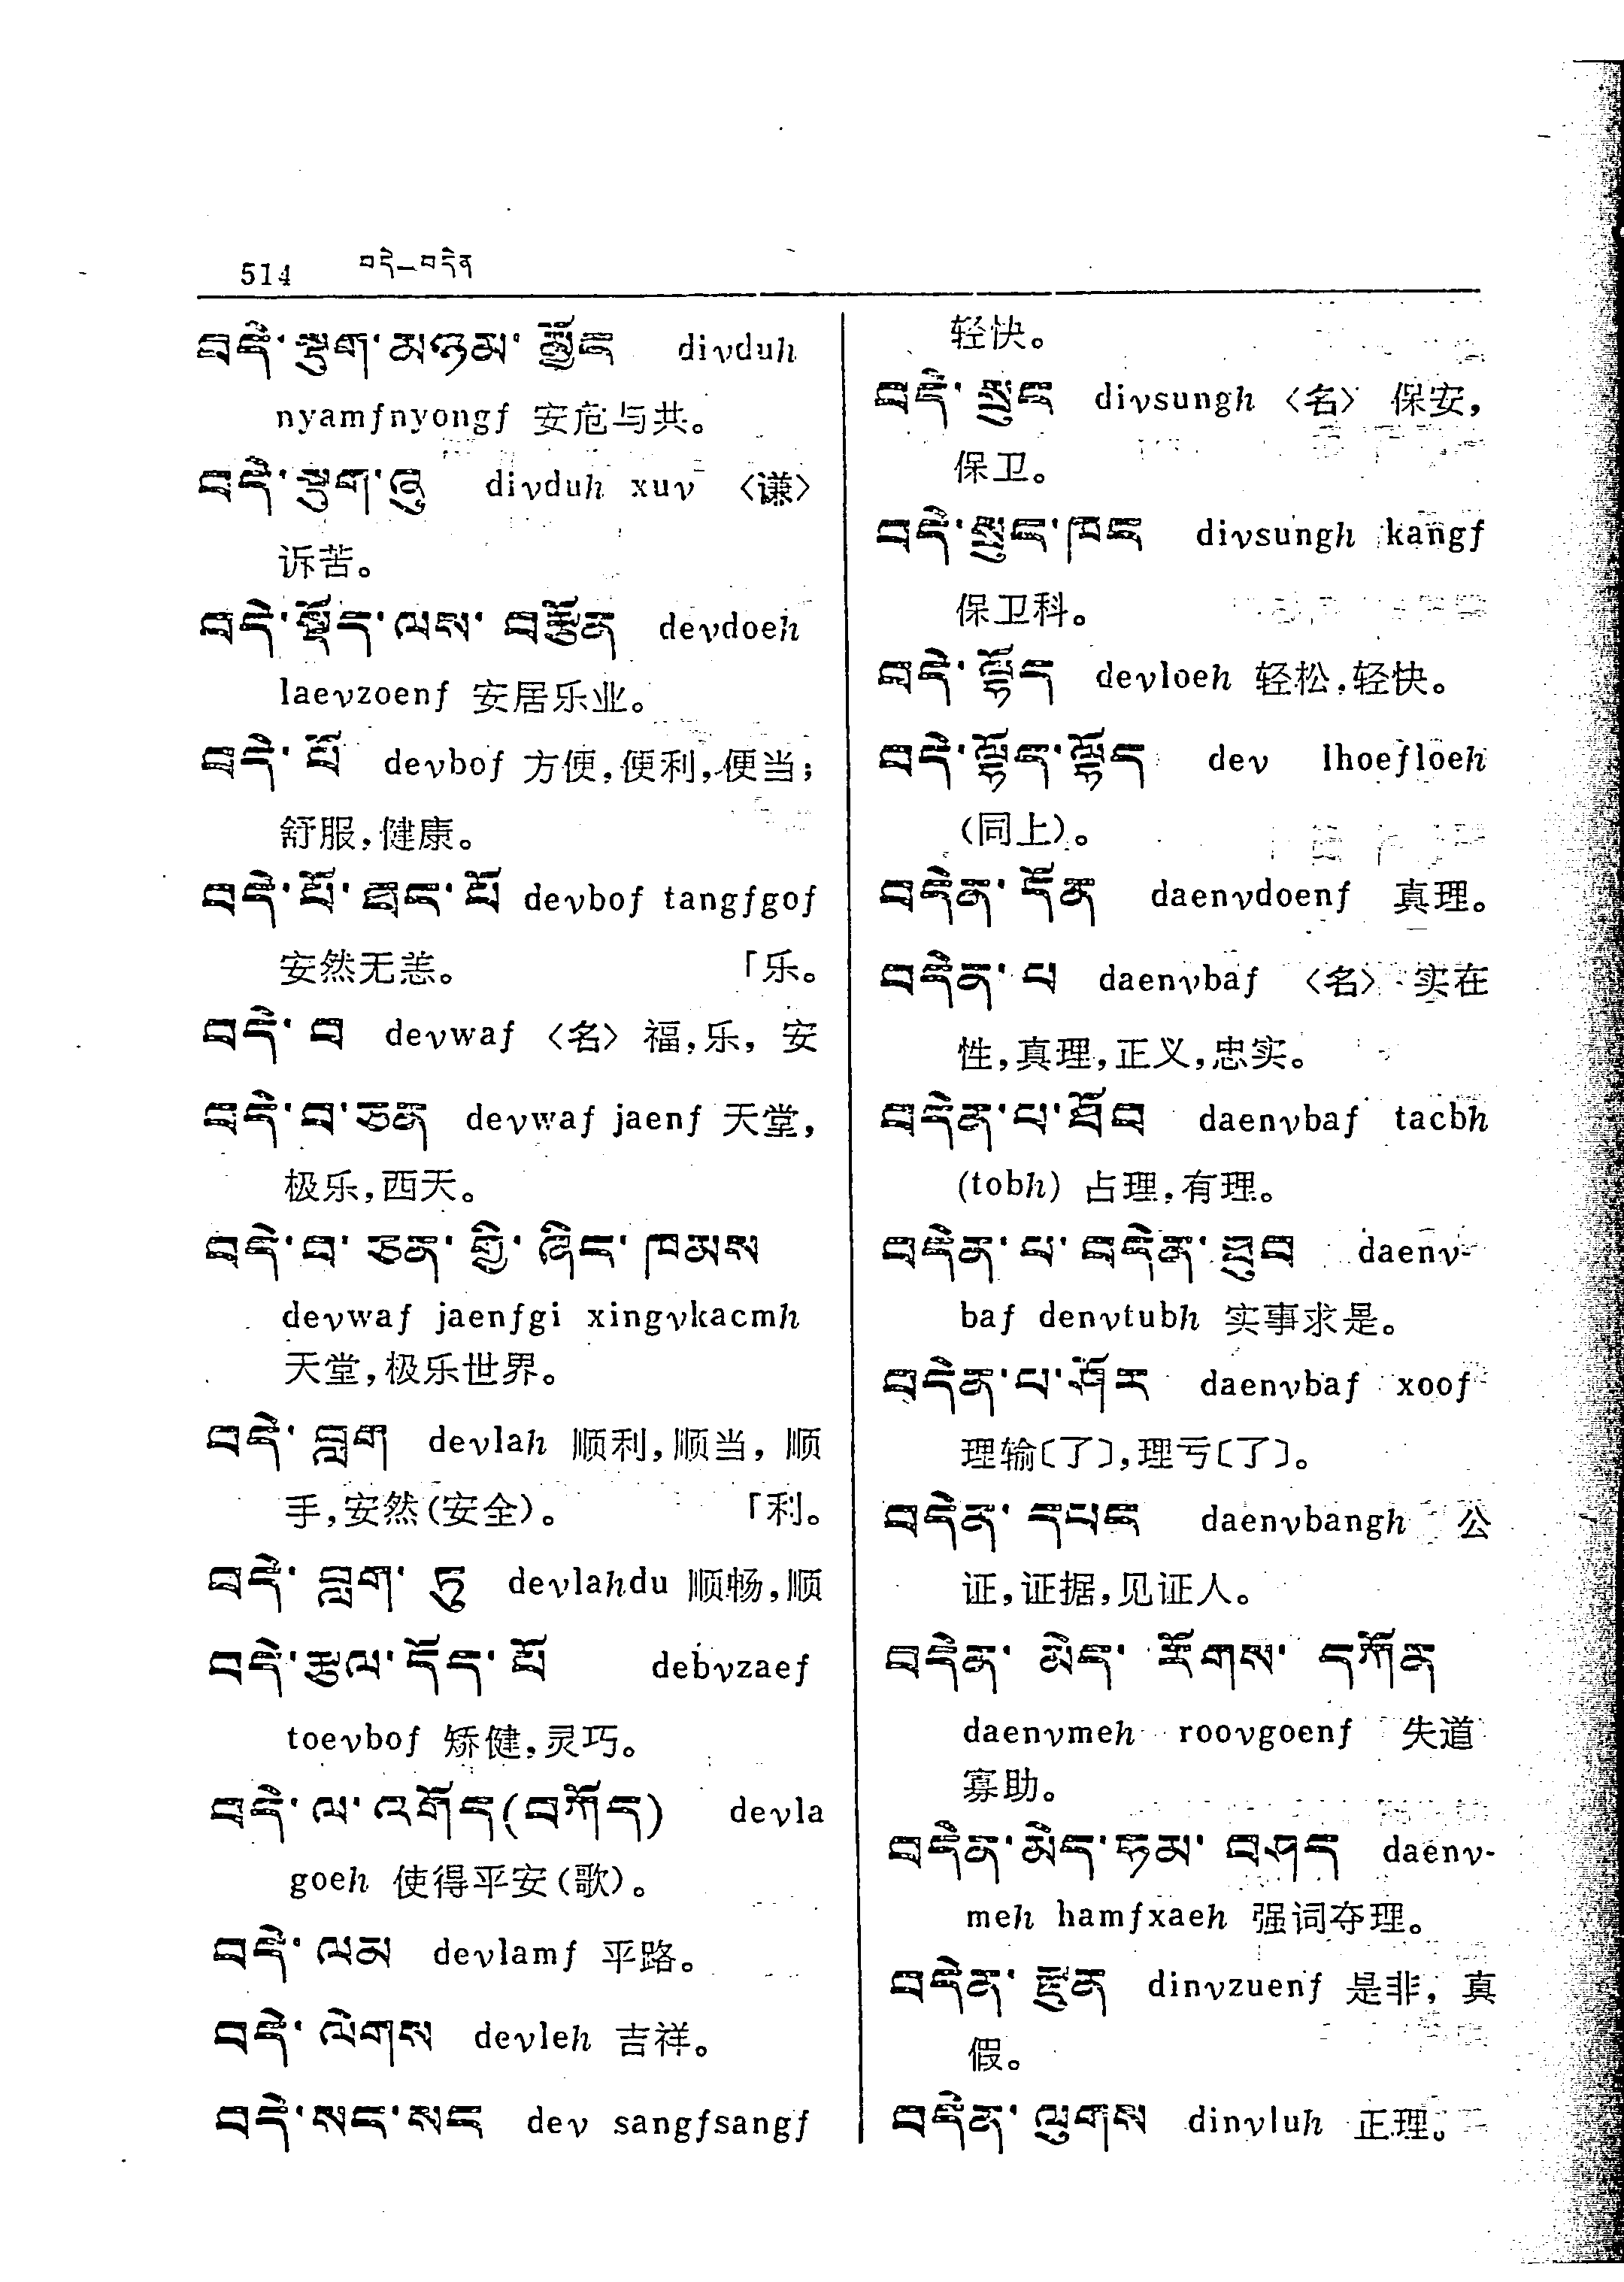 514 བདེ—བདེན
བདེ་སྡུག་མཉམ་མྱོང divduh
nyamfnyongf 安危与共。
བདེ་སྡུག་ཞུ divduh xuv 〈谦〉
诉苦。
བདེ་སྡོད་ལས་བརྩོན devdoeh
laevzoenf 安居乐业。
བདེ་པོ devbof 方便,便利,便当;
舒服,健康。
བདེ་པོ་ཐང་པོ devbof tangfgof
安然无恙。 「乐。
བདེ་བ devwaf 〈名〉 福,乐, 安
བདེ་བ་ཅན devwaf jaenf 天堂,
极乐,西天。
བདེ་བ་ཅན་གྱི་ཞིང་ཁམས
devwaf jaenfgi xingvkacmh
天堂,极乐世界。
བདེ་བླག devlah 顺利,顺当, 顺
手,安然(安全)。 「利。
བདེ་བླག་ཏུ devlahdu 顺畅,顺
བདེ་རྩལ་དོད་པོ debvzaef
toevbof 矫健,灵巧。
བདེ་ལ་འགོད(བཀོད) devla
goeh 使得平安(歌)。
བདེ་ལམ devlamf 平路。
བདེ་ལེགས devleh 吉祥。
བདེ་སང་སང dev sangfsangf
轻快。
བདེ་སྲུང divsungh 〈名〉 保安,
保卫。
བདེ་སྲུང་ཁང divsungh kangf
保卫科。
བདེ་ལྷོད devloeh 轻松,轻快。
བདེ་ལྷོད་ལྷོད dev lhoefloeh
(同上)。
བདེན་དོན daenvdoenf 真理。
བདེན་པ daenvbaf 〈名〉 实在
性,真理,正义,忠实。
བདེན་པ་ཐོབ daenvbaf tacbh
(tobh) 占理,有理。
བདེན་པ་བདེན་ཐུབ daenv-
baf denvtubh 实事求是。
བདེན་པ་ཤོར daenvbaf xoof
理输〔了〕,理亏〔了〕。
བདེན་དཔང daenvbangh 公
证,证据,见证人。
བདེན་མེད་རོགས་དཀོན
daenvmeh roovgoenf 失道
寡助。
བདེན་མེད་ཧམ་བཤད daenv-
meh hamfxaeh 强词夺理。
བདེན་རྫུན dinvzuenf 是非, 真
假。
བདེན་ལུགས dinvluh 正理。